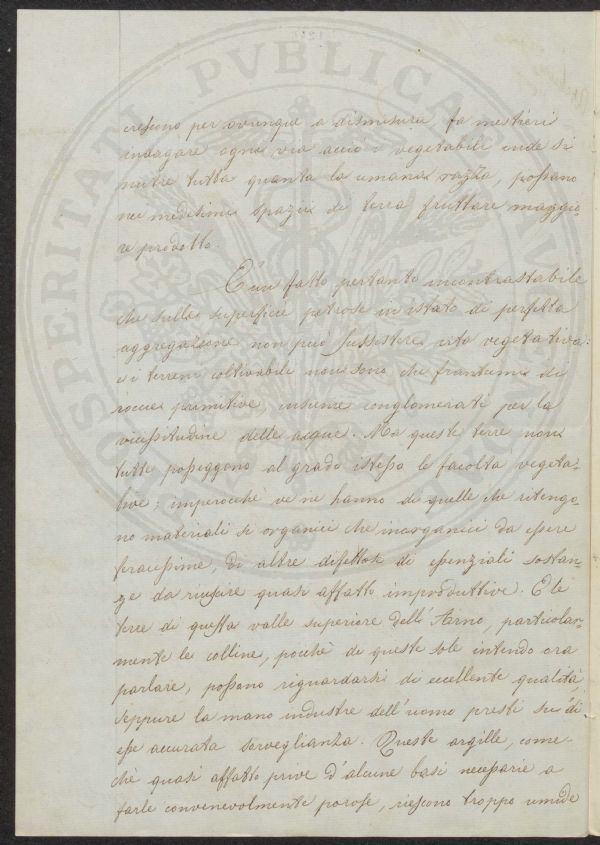 crescono per ovunque a dismisura fa mestieri
indagare ogni via acciò i vegetabili onde si
nutre tutta quanta la umana razza, possano
nei medesimi spazii di terra fruttare maggio-
re prodotto.
È un fatto pertanto incontrastabile
che sulle superficie petrose in istato di perfetta
aggregazione non può sussistere vita vegetativa:
i terreni coltivabili non sono che frantumi di
roccie primitive, insieme conglomerati per la
vicissitudine delle acque. Ma queste terre non
tutte posseggono al grado istesso le facoltà vegeta-
tive; imperocchè ve ne hanno di quelle che ritengo-
no materiali sì organici che inorganici da essere
feracissime, di altre difettose di essenziali sostan-
ze da riuscire quasi affatto improduttive. E le
terre di questa valle superiore dell'Arno, particolar-
mente le colline, poichè di queste sole intendo ora
parlare, possono riguardarsi di eccellente qualità,
seppure la mano industre dell'uomo presti su di
esse accurata sorveglianza. Queste argille, come-
chè quasi affatto prive d'alcune basi necessarie a
farle convenevolmente porose, riescono troppo umide
PROSPERITATI PVBLICAE